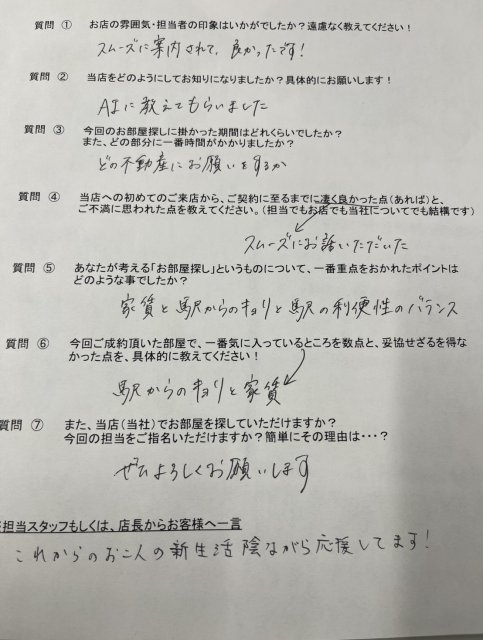 質問 ① お店の雰囲気・担当者の印象はいかがでしたか？遠慮なく教えてください！
スムーズに案内されて、良かったです！
質問 ② 当店をどのようにしてお知りになりましたか？具体的にお願いします！
AIに教えてもらいました
質問 ③ 今回のお部屋探しに掛かった期間はどれくらいでしたか？
また、どの部分に一番時間がかかりましたか？
どの不動産にお願いをするか
質問 ④ 当店への初めてのご来店から、ご契約に至るまでに凄く良かった点（あれば）と、
ご不満に思われた点を教えてください。（担当でもお店でも当社についてでも結構です）
スムーズにお話いただいた
質問 ⑤ あなたが考える「お部屋探し」というものについて、一番重点をおかれたポイントは
どのような事でしたか？
家賃と駅からのキョリと駅の利便性のバランス
質問 ⑥ 今回ご成約頂いた部屋で、一番気に入っているところを数点と、妥協せざるを得な
かった点を、具体的に教えてください！
駅からのキョリと家賃
質問 ⑦ また、当店（当社）でお部屋を探していただけますか？
今回の担当をご指名いただけますか？簡単にその理由は・・・？
ぜひよろしくお願いします
担当スタッフもしくは、店長からお客様へ一言
これからのお二人の新生活陰ながら応援してます！